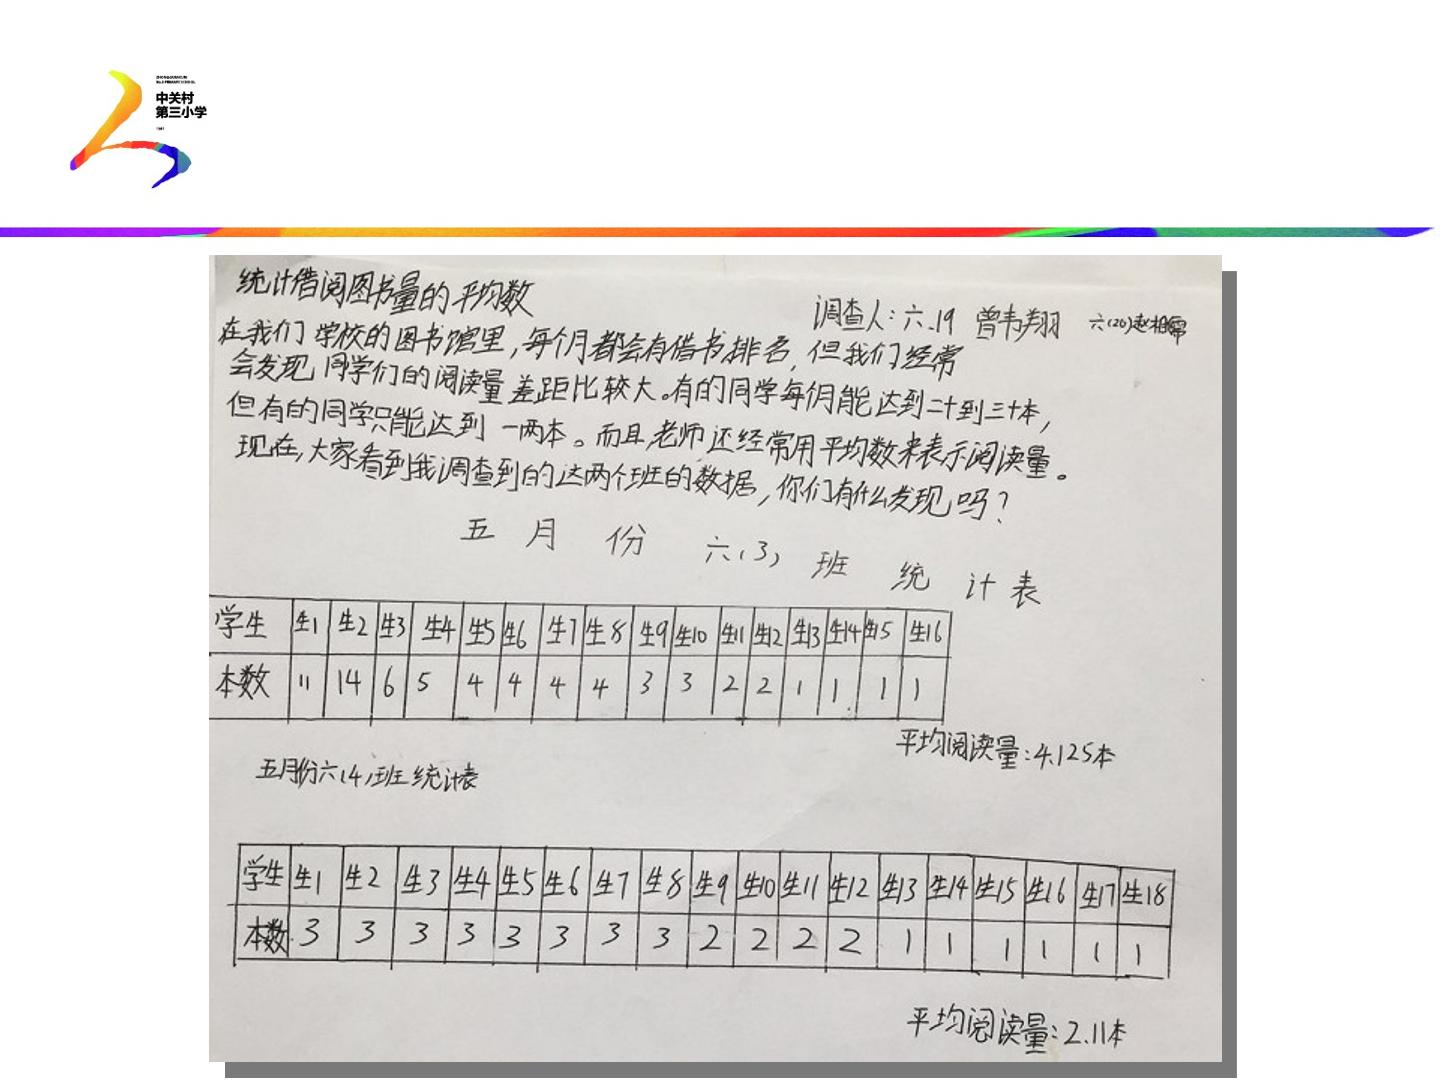 ZHONGGUANCUN
No.3 PRIMARY SCHOOL
中关村
第三小学
1981
统计借阅图书量的平均数
调查人:六.19 曾韦翔 六(20)赵相霈
在我们学校的图书馆里,每个月都会有借书排名,但我们经常
会发现同学们的阅读量差距比较大。有的同学每月能达到二十到三十本,
但有的同学只能达到一两本。而且,老师还经常用平均数来表示阅读量。
现在,大家看到我调查到的这两个班的数据,你们有什么发现吗?
五月份六(3)班统计表
学生 生1 生2 生3 生4 生5 生6 生7 生8 生9 生10 生11 生12 生13 生14 生15 生16
本数 11 14 6 5 4 4 4 4 3 3 2 2 1 1 1 1
平均阅读量:4.125本
五月份六(4)班统计表
学生 生1 生2 生3 生4 生5 生6 生7 生8 生9 生10 生11 生12 生13 生14 生15 生16 生17 生18
本数 3 3 3 3 3 3 3 3 2 2 2 2 1 1 1 1 1 1
平均阅读量:2.11本